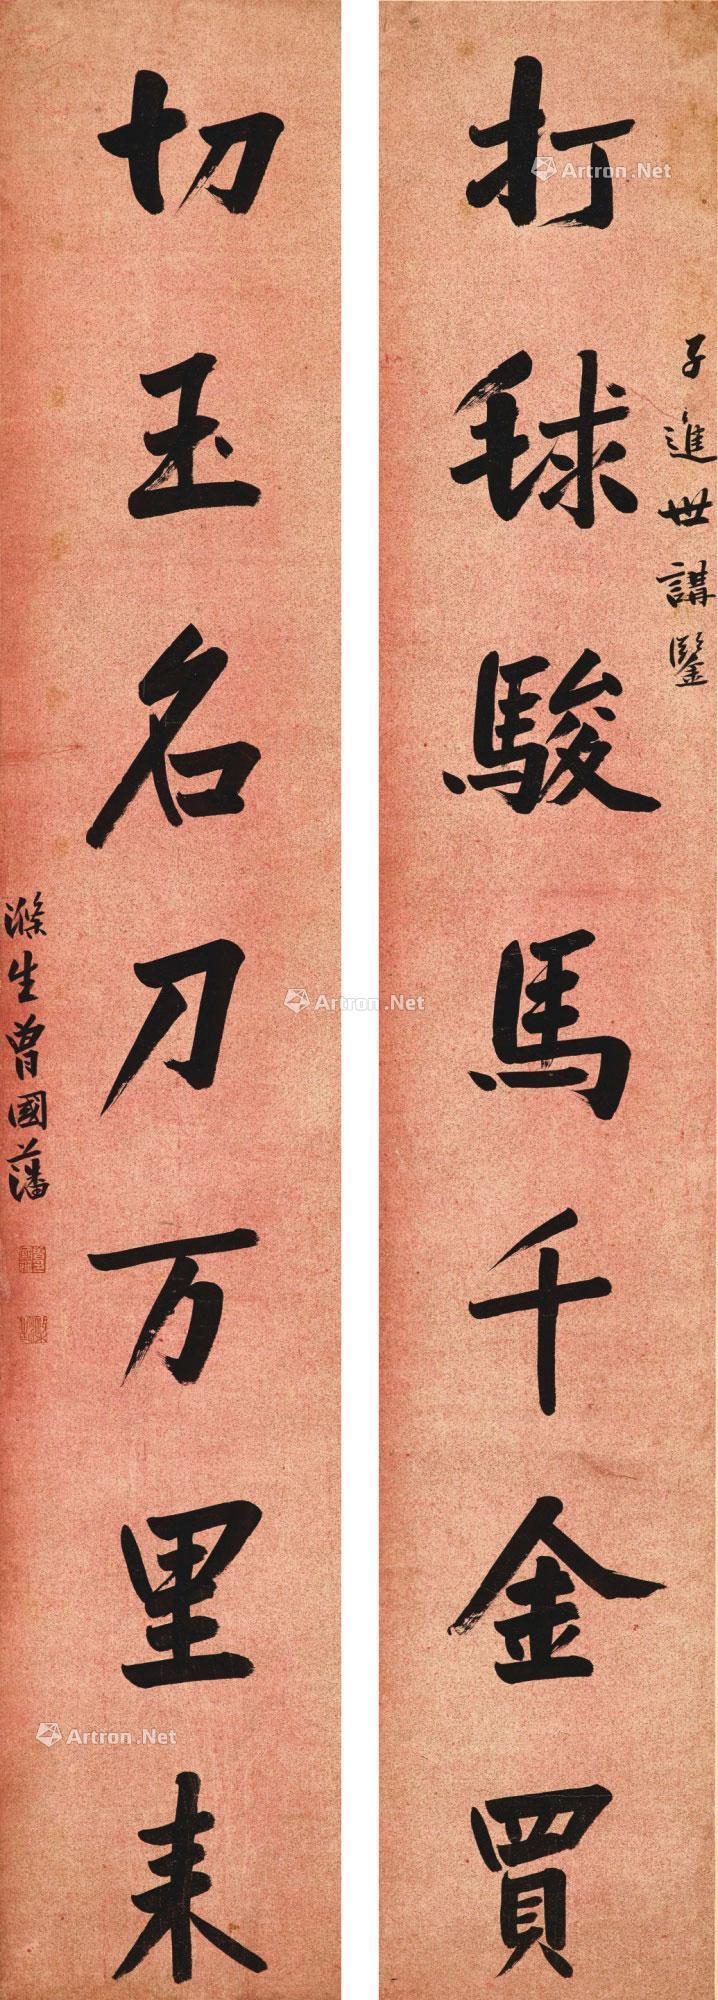 打毬駿馬千金買
子進世講鑒
切玉名刀万里来
滌生曾國藩
Artron.Net
Artron.Net
Artron.Net